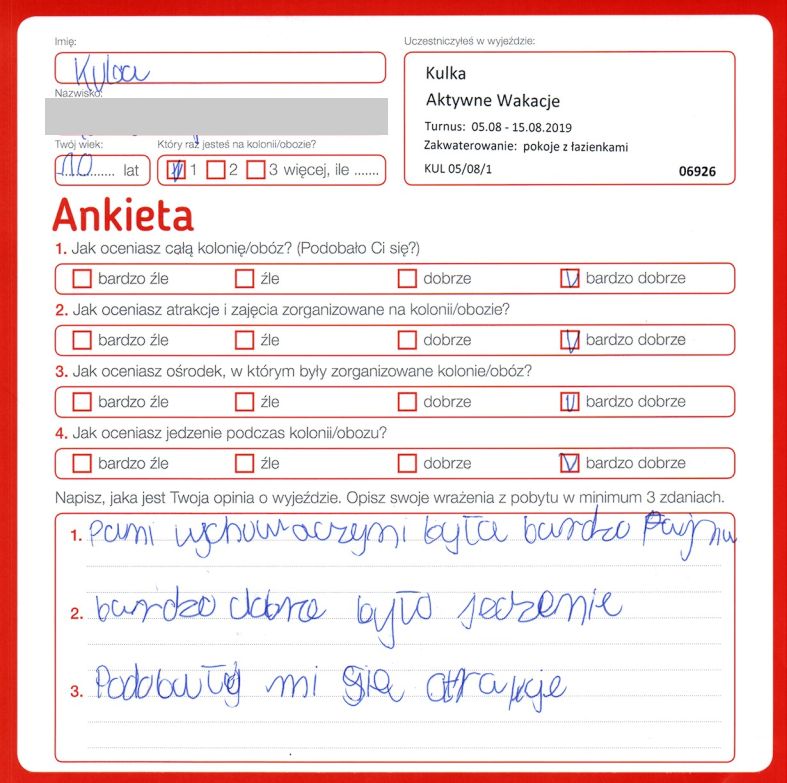 Imię:
Uczestniczyłeś w wyjeździe:
Kulka
Kulka
Aktywne Wakacje
Nazwisko:
Turnus: 05.08 - 15.08.2019
Zakwaterowanie: pokoje z łazienkami
KUL 05/08/1 06926
Twój wiek: Który raz jesteś na kolonii/obozie?
10 lat 1 2 3 więcej, ile .......
Ankieta
1. Jak oceniasz całą kolonię/obóz? (Podobało Ci się?)
bardzo źle źle dobrze V bardzo dobrze
2. Jak oceniasz atrakcje i zajęcia zorganizowane na kolonii/obozie?
bardzo źle źle dobrze V bardzo dobrze
3. Jak oceniasz ośrodek, w którym były zorganizowane kolonie/obóz?
bardzo źle źle dobrze V bardzo dobrze
4. Jak oceniasz jedzenie podczas kolonii/obozu?
bardzo źle źle dobrze V bardzo dobrze
Napisz, jaka jest Twoja opinia o wyjeździe. Opisz swoje wrażenia z pobytu w minimum 3 zdaniach.
1. Pani wychowaczyni była bardzo
2. bardzo dobre było jedzenie
3. Podobały mi się atrakcje